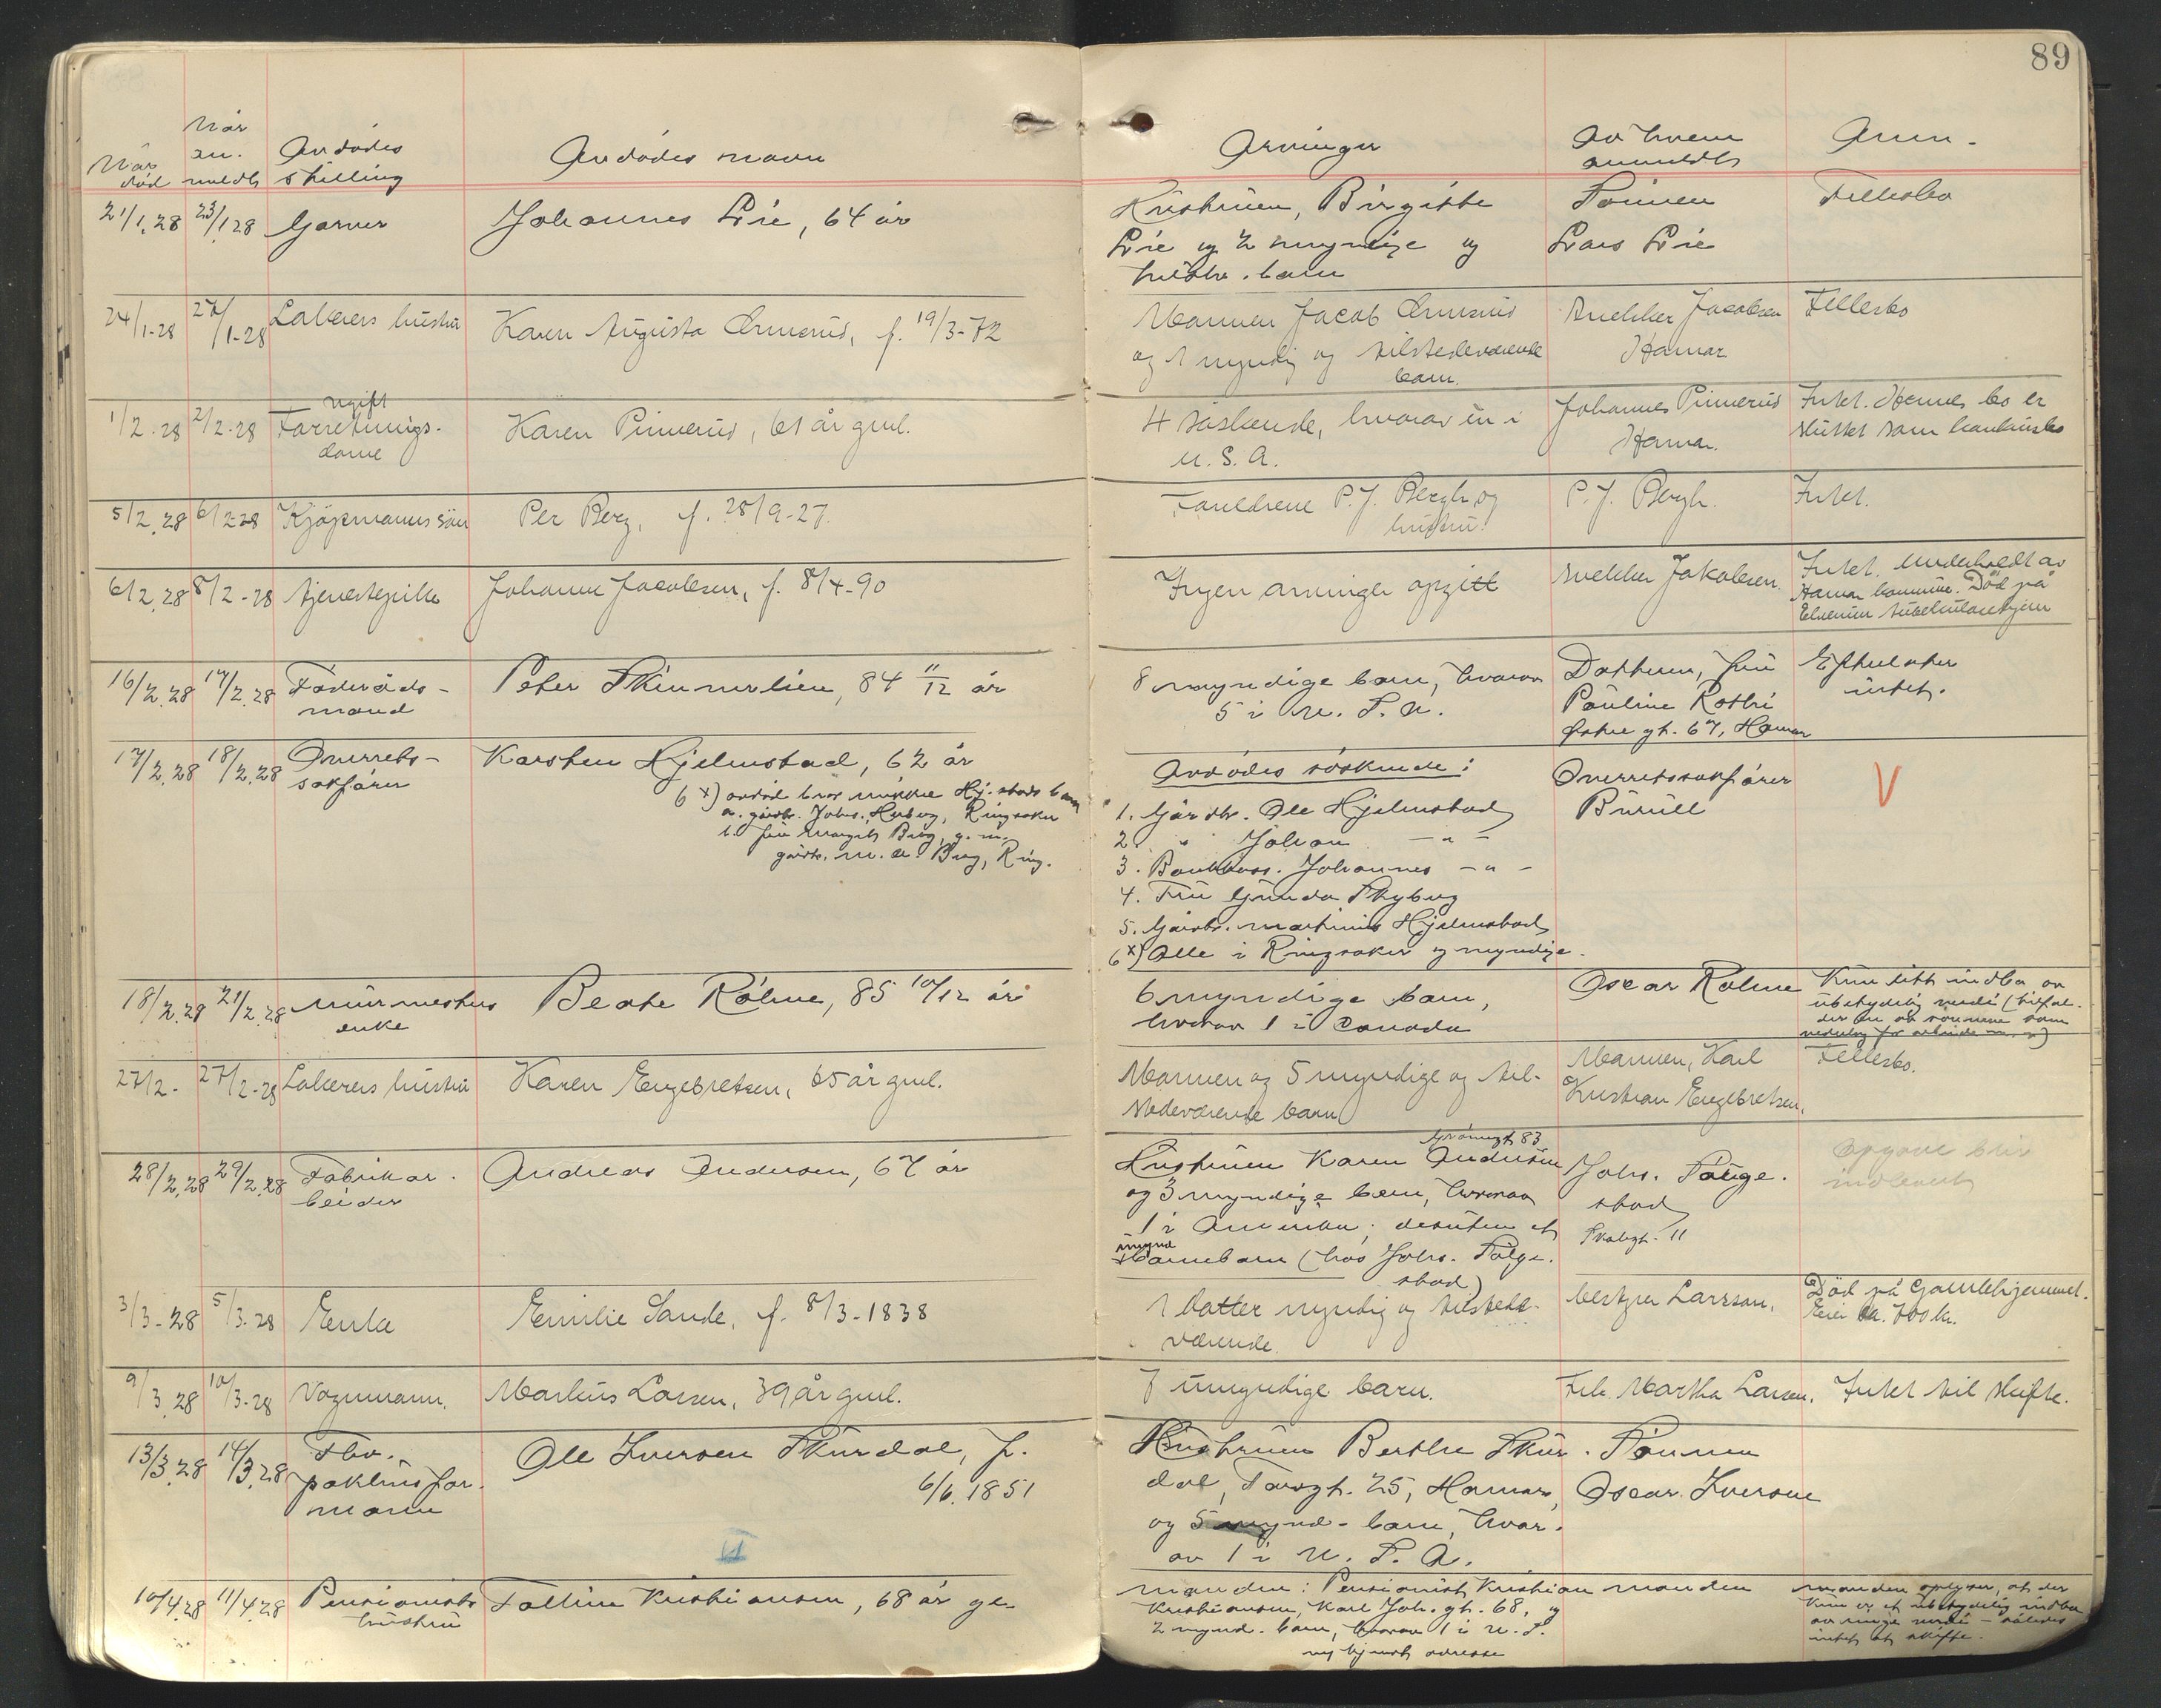 89
Når død
Når anmeldt
Avdødes stilling
Avdødes navn
Arvinger
Av hvem anmeldt
Anm.
21/1.28 23/1.28 Garver
Johannes Lie, 64 år
Hustruen, Birgitte
Lie og 2 myndige og
tilstr. barn
Sønnen
Lars Lie
Fellesbo
24/1-28 27/1-28 Laberers hustru
Karen Augusta Ormerud, f. 19/3-72
Mannen Jacob Ormerud
og 1 myndig og tilstedeværende
barn.
Snekker Jacobsen
Hamar
Fellesbo
1/2-28 2/2-28 ugift
Forretnings-
dame
Karen Pinnerud, 61 år gml.
4 søskende, hvorav en i
U.S.A.
Johannes Pinnerud
Hamar.
Intet. Hennes bo er
sluttet som konkursbo
5/2.28 6/2-28 Kjøpmanns søn
Per Berg, f. 28/9-27.
Foreldrene P.J. Bergh og
hustru.
P.J. Bergh.
Intet.
6/2.28 8/2-28 Tjenestepike
Johanne Jacobsen, f. 8/4-90
Ingen arvinger opgitt
Snekker Jakobsen.
Intet. Underholdt av
Hamar kommune. Død på
Elverum tuberkulosehjem
16/2.28 17/2.28 Føderåds-
mand
Peter Skinnerlien, 84 11/12 år
8 myndige barn, hvorav
5 i U.S.A.
Datteren, fru
Pauline Rostri
Østre gt. 67, Hamar
Efterlater
intet.
17/2.28 18/2.28 Overrets-
sakfører
Karsten Hjelmstad, 62 år
6 x) avdød bror Mikkel Hj.stads barn
a. gårdbr. Johs. Herberg, Ringsaker
b. fru Margit Berg, g. m.
gårdbr. M. A. Berg, Ring.
Avdødes søskende:
1. Gårdbr. Ole Hjelmstad
2. " Johan - " -
3. Bankkass. Johannes - " -
4. Fru Gunda Skyberg
5. Gårdbr. Martinius Hjelmstad
6 x) Alle i Ringsaker og myndige.
Overretssakfører
Burull
V
18/2.28 21/2.28 Murmesters
enke
Beate Røhne, 85 10/12 år
6 myndige barn,
hvorav 1 i Canada
Oscar Røhne
Kun litt indbo av
ubetydelig verdi (tilfal-
der en av sønnene som
vederlag for arbeide m. v.)
27/2- 27/2-28 Laberers hustru
Karen Engebretsen, 65 år gml.
Mannen og 5 myndige og til-
stedeværende barn
Mannen, Karl
Kristian Engebretsen.
Fellesbo.
28/2.28 29/2.28 Fabrikar-
beider
Andreas Andersen, 67 år
Grønnegt 83
Hustruen Karen Andersen
og 3 myndige barn, hvorav
1 i Amerika; desuten et
mynd
barnebarn (hos Johs. Sølge-
stad)
Johs. Sauge-
stad
Skolegt. 11
Opgave blir
indlevert
3/3-28 5/3.28 Enke
Emilie Sande, f. 8/3-1838
1 datter myndig og tilstede-
værende.
Bestyrer Larsson.
Død på Gamlehjemmet.
Eier ca. 700 kr.
9/3.28 10/3-28 Vognmann.
Markus Larsen, 39 år gml.
7 umyndige barn.
Frk. Martha Larsen.
Intet til skifte.
13/3.28 14/3.28 Fhv.
pakhusfor-
mann
Ole Iversen Skurdal, f.
6/6.1851
Hustruen Berthe Skur-
dal, Torvgt. 25, Hamar,
og 5 mynd. barn, hvor-
av 1 i U.S.A.
Sønnen
Oscar Iversen
10/4.28 11/4.28 Pensionists
hustru
Kristiansen, 68 år gl.
Manden: Pensionist Kristian
Kristiansen, Karl Joh. gt. 68, og
2 mynd. barn, hvorav 1 i U.S.
adresse
manden
Manden oplyser, at der
kun er et ubetydelig indbo
av ringe verdi - således
intet at skifte.